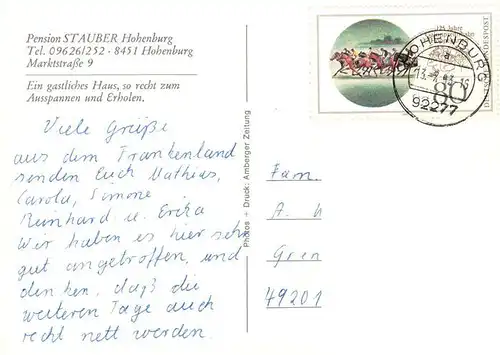 Pension STAUBER Hohenburg
Tel. 09626/252 · 8451 Hohenburg
Marktstraße 9
Ein gastliches Haus, so recht zum
Ausspannen und Erholen.
Viele Grüße
aus dem Frankenland
senden Euch Mathias,
Carola, Simone
Reinhard u. Erika
Wir haben es hier sehr
gut angetroffen, und
denken, daß die
weiteren Tage auch
recht nett werden.
Photos + Druck: Amberger Zeitung
125 Jahre
80
HOHENBURG
a
92277
Fam.
A. h
Gren
49201